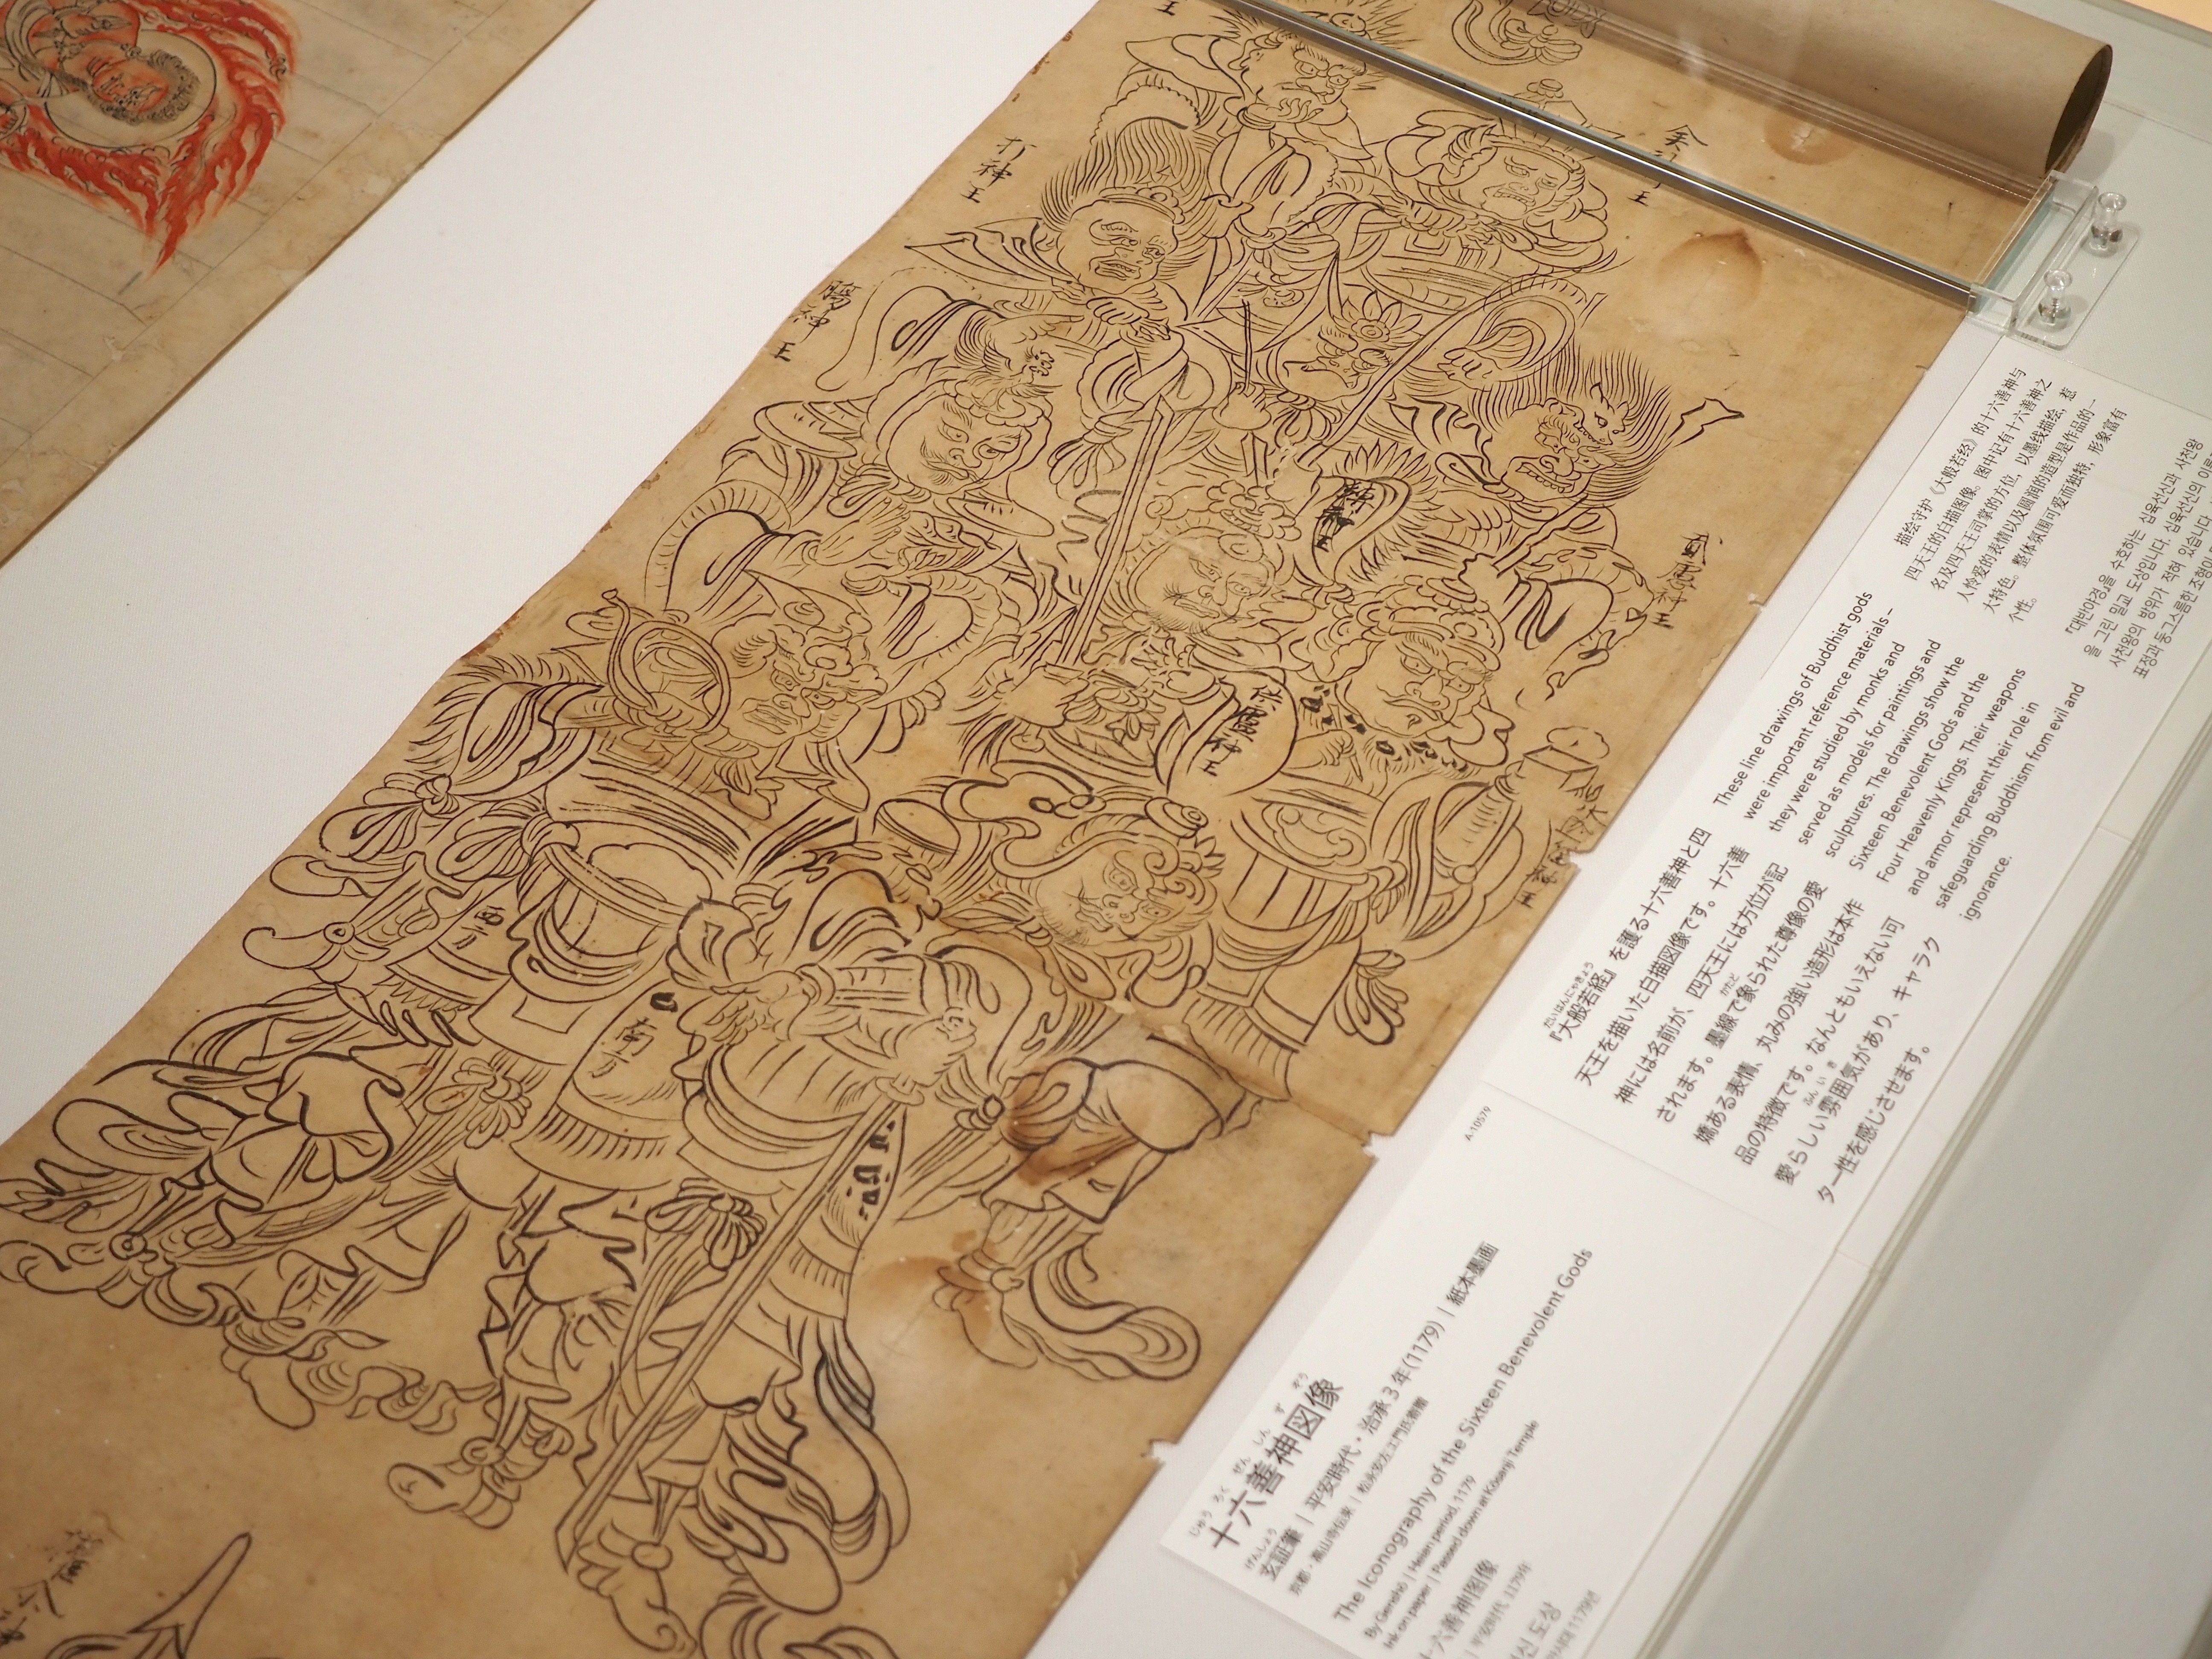 打神王
神王
供盧神王
西方
南方
『大般若経』を護る十六善神と四
天王を描いた白描図像です。十六善
神には名前が、四天王には方位が記
されます。墨線で象られた尊像の愛
嬌ある表情、丸みの強い造形は本作
品の特徴です。なんともいえない可
愛らしい雰囲気があり、キャラク
ター性を感じさせます。
These line drawings of Buddhist gods
were important reference materials–
they were studied by monks and
served as models for paintings and
sculptures. The drawings show the
Sixteen Benevolent Gods and the
Four Heavenly Kings. Their weapons
and armor represent their role in
safeguarding Buddhism from evil and
ignorance.
描绘守护《大般若经》的十六善神与
四天王的白描图像。图中记有十六善神之
名及四天王司掌的方位，以墨线描绘，惹
人怜爱的表情以及圆润的造型是作品的一
大特色。整体氛围可爱而独特，形象富有
个性。
『대반야경』을 수호하는 십육선신과 사천왕
을 그린 밀교 도상입니다. 십육선신의 이름
사천왕의 방위가 적혀 있습니다
표정과 둥그스름한 조형이
A-10579
じゅう ろく ぜん しん ず ぞう
十六善神図像
げんしょう
玄証筆｜平安時代・治承3年(1179)｜紙本墨画
京都・高山寺伝来｜松永安左エ門氏寄贈
The Iconography of the Sixteen Benevolent Gods
By Genshō | Heian period, 1179
Ink on paper | Passed down at Kōsanji Temple
十六善神图像
平安时代 1179年
신 도상
1179년